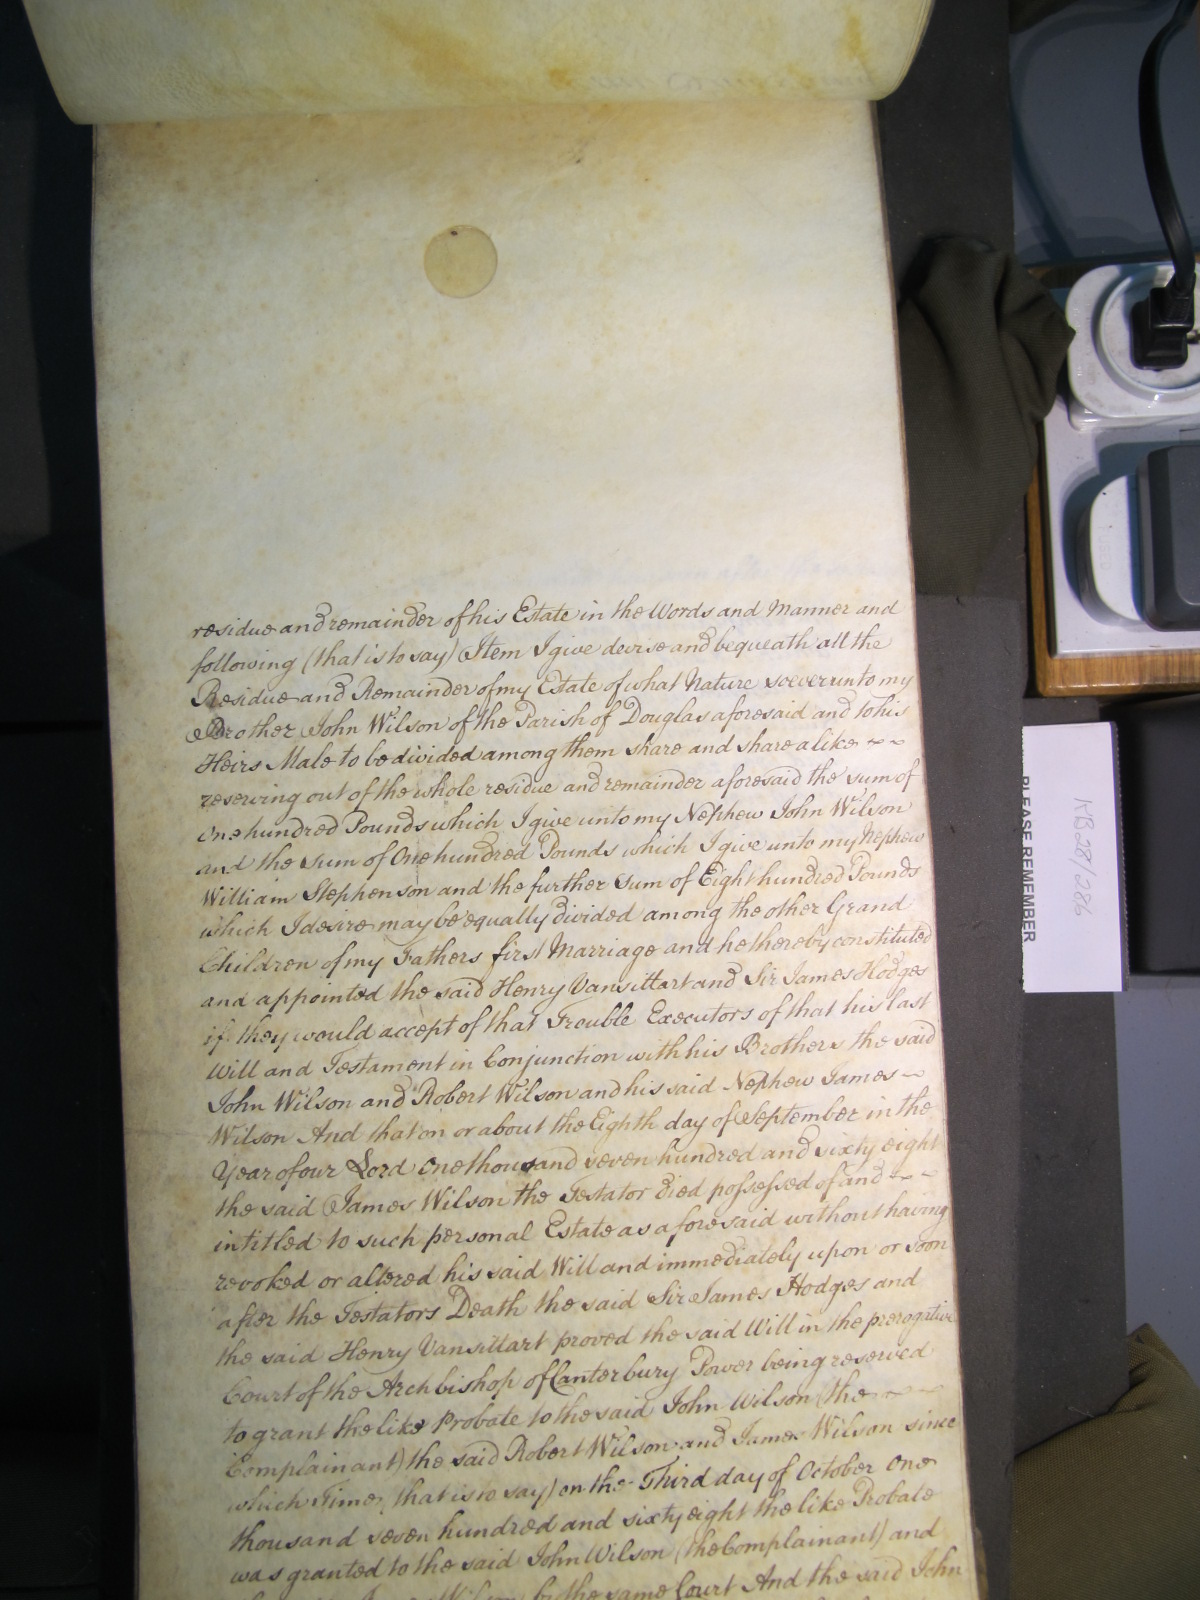 residue and remainder of his Estate in the Words and Manner and
following (that is to say) Item I give devise and bequeath all the
Residue and Remainder of my Estate of what Nature soever unto my
Brother John Wilson of the Parish of Douglas aforesaid and to his
Heirs Male to be divided among them share and share alike ~ ~
reserving out of the whole residue and remainder aforesaid the sum of
One hundred Pounds which I give unto my Nephew John Wilson
and the sum of One hundred Pounds which I give unto my Nephew
William Stephenson and the further Sum of Eight hundred Pounds
which I desire may be equally divided among the other Grand
Children of my Fathers first Marriage and he thereby constituted
and appointed the said Henry Vansittart and Sir James Hodges
if they would accept of that Trouble Executors of that his last
Will and Testament in Conjunction with his Brothers the said
John Wilson and Robert Wilson and his said Nephew James ~
Wilson And that on or about the Eighth day of September in the
Year of our Lord One thousand seven hundred and sixty eight
the said James Wilson the Testator died possessed of and ~ ~
intitled to such personal Estate as aforesaid without having
revoked or altered his said Will and immediately upon or soon
after the Testators Death the said Sir James Hodges and
the said Henry Vansittart proved the said Will in the prerogative
Court of the Archbishop of Canterbury Power being reserved
to grant the like Probate to the said John Wilson (the ~ ~
Complainant) the said Robert Wilson and James Wilson since
which Time (that is to say) on the Third day of October One
thousand seven hundred and sixty eight the like Probate
was granted to the said John Wilson (the Complainant) and
Wilson by the same Court And the said John
PLEASE REMEMBER
KB 28/286